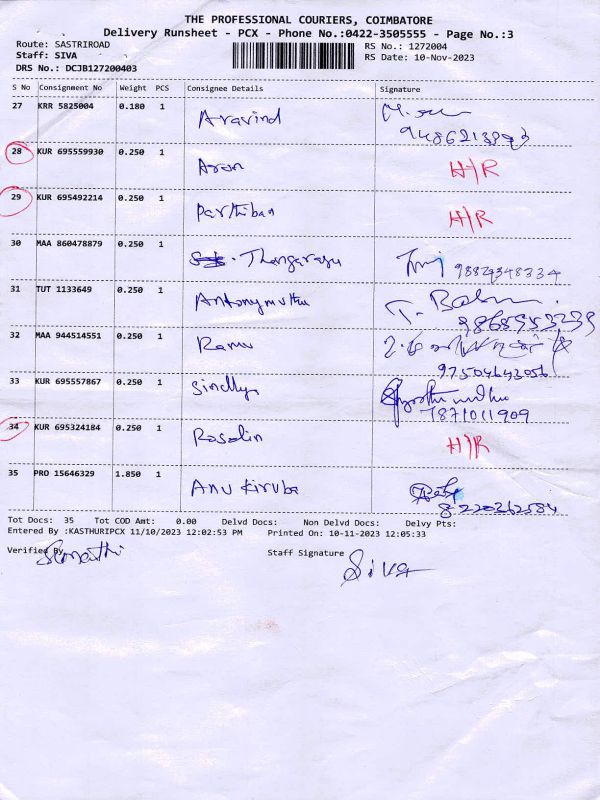 THE PROFESSIONAL COURIERS, COIMBATORE
Delivery Runsheet - PCX - Phone No.:0422-3505555 - Page No.:3
Route: SASTRIROAD RS No.: 1272004
Staff: SIVA RS Date: 10-Nov-2023
DRS No.: DCJB127200403
S No Consignment No Weight PCS Consignee Details Signature
27 KRR 5825004 0.180 1 Aravind
28 KUR 695559930 0.250 1 Aron H/R
29 KUR 695492214 0.250 1 Parthiban H/R
30 MAA 860478879 0.250 1 Thangarasu 98829348334
31 TUT 1133649 0.250 1 Antonymuthu T. Babu
9868953239
32 MAA 944514551 0.250 1 Ramu
97504643056
33 KUR 695557867 0.250 1 Sindhya
7871011909
34 KUR 695324184 0.250 1 Rosalin H/R
35 PRO 15646329 1.850 1 Anu Kiruba
8220262584
Tot Docs: 35 Tot COD Amt: 0.00 Delvd Docs: Non Delvd Docs: Delvy Pts:
Entered By :KASTHURIPCX 11/10/2023 12:02:53 PM Printed On: 10-11-2023 12:05:33
Verified By Staff Signature
Siva